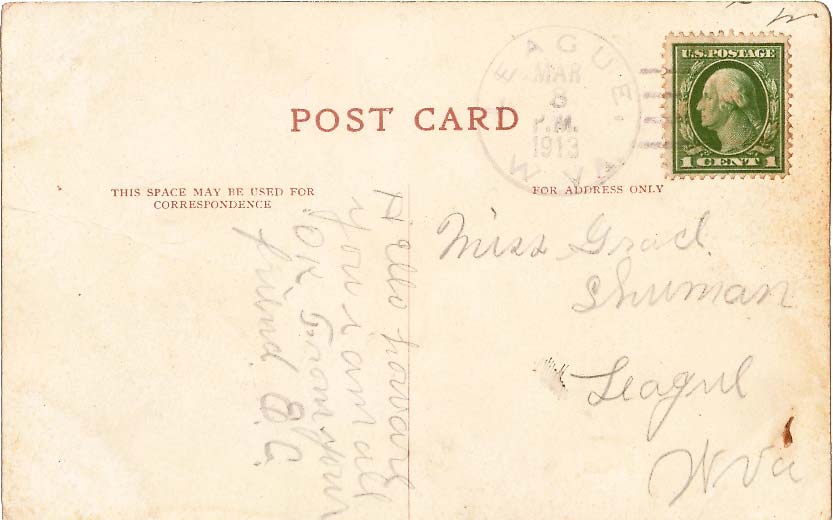 U.S. POSTAGE
1 CENT 1
LEAGUE, W.VA.
MAR
8
P.M.
1913
POST CARD
THIS SPACE MAY BE USED FOR
CORRESPONDENCE
FOR ADDRESS ONLY
Hello how are
you i am all
OK From your
friend E.C.
Miss Grace
Shuman
League
W Va